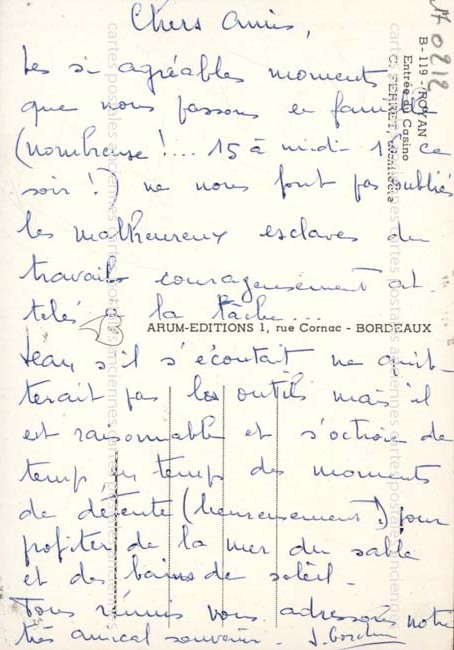 Chers amis,
Les si agréables moments
que nous passons en famille
(nombreuse !... 15 à midi 1 ce
soir !) ne nous font pas oublier
les malheureux esclaves du
travail courageusement at-
telés à la tâche...
Jean s'il s'écoutait ne quit-
terait pas les outils mais il
est raisonnable et s'octroie de
temp en temp des moments
de détente (heureusement !) pour
profiter de la mer du sable
et des bains de soleil -
Tous réunis vous adressons notre
très amical souvenir -
B - 119 - ROYAN
Entrée du Casino
C. FERRET, Architecte
ARUM-EDITIONS 1, rue Cornac - BORDEAUX
cartes postales anciennes